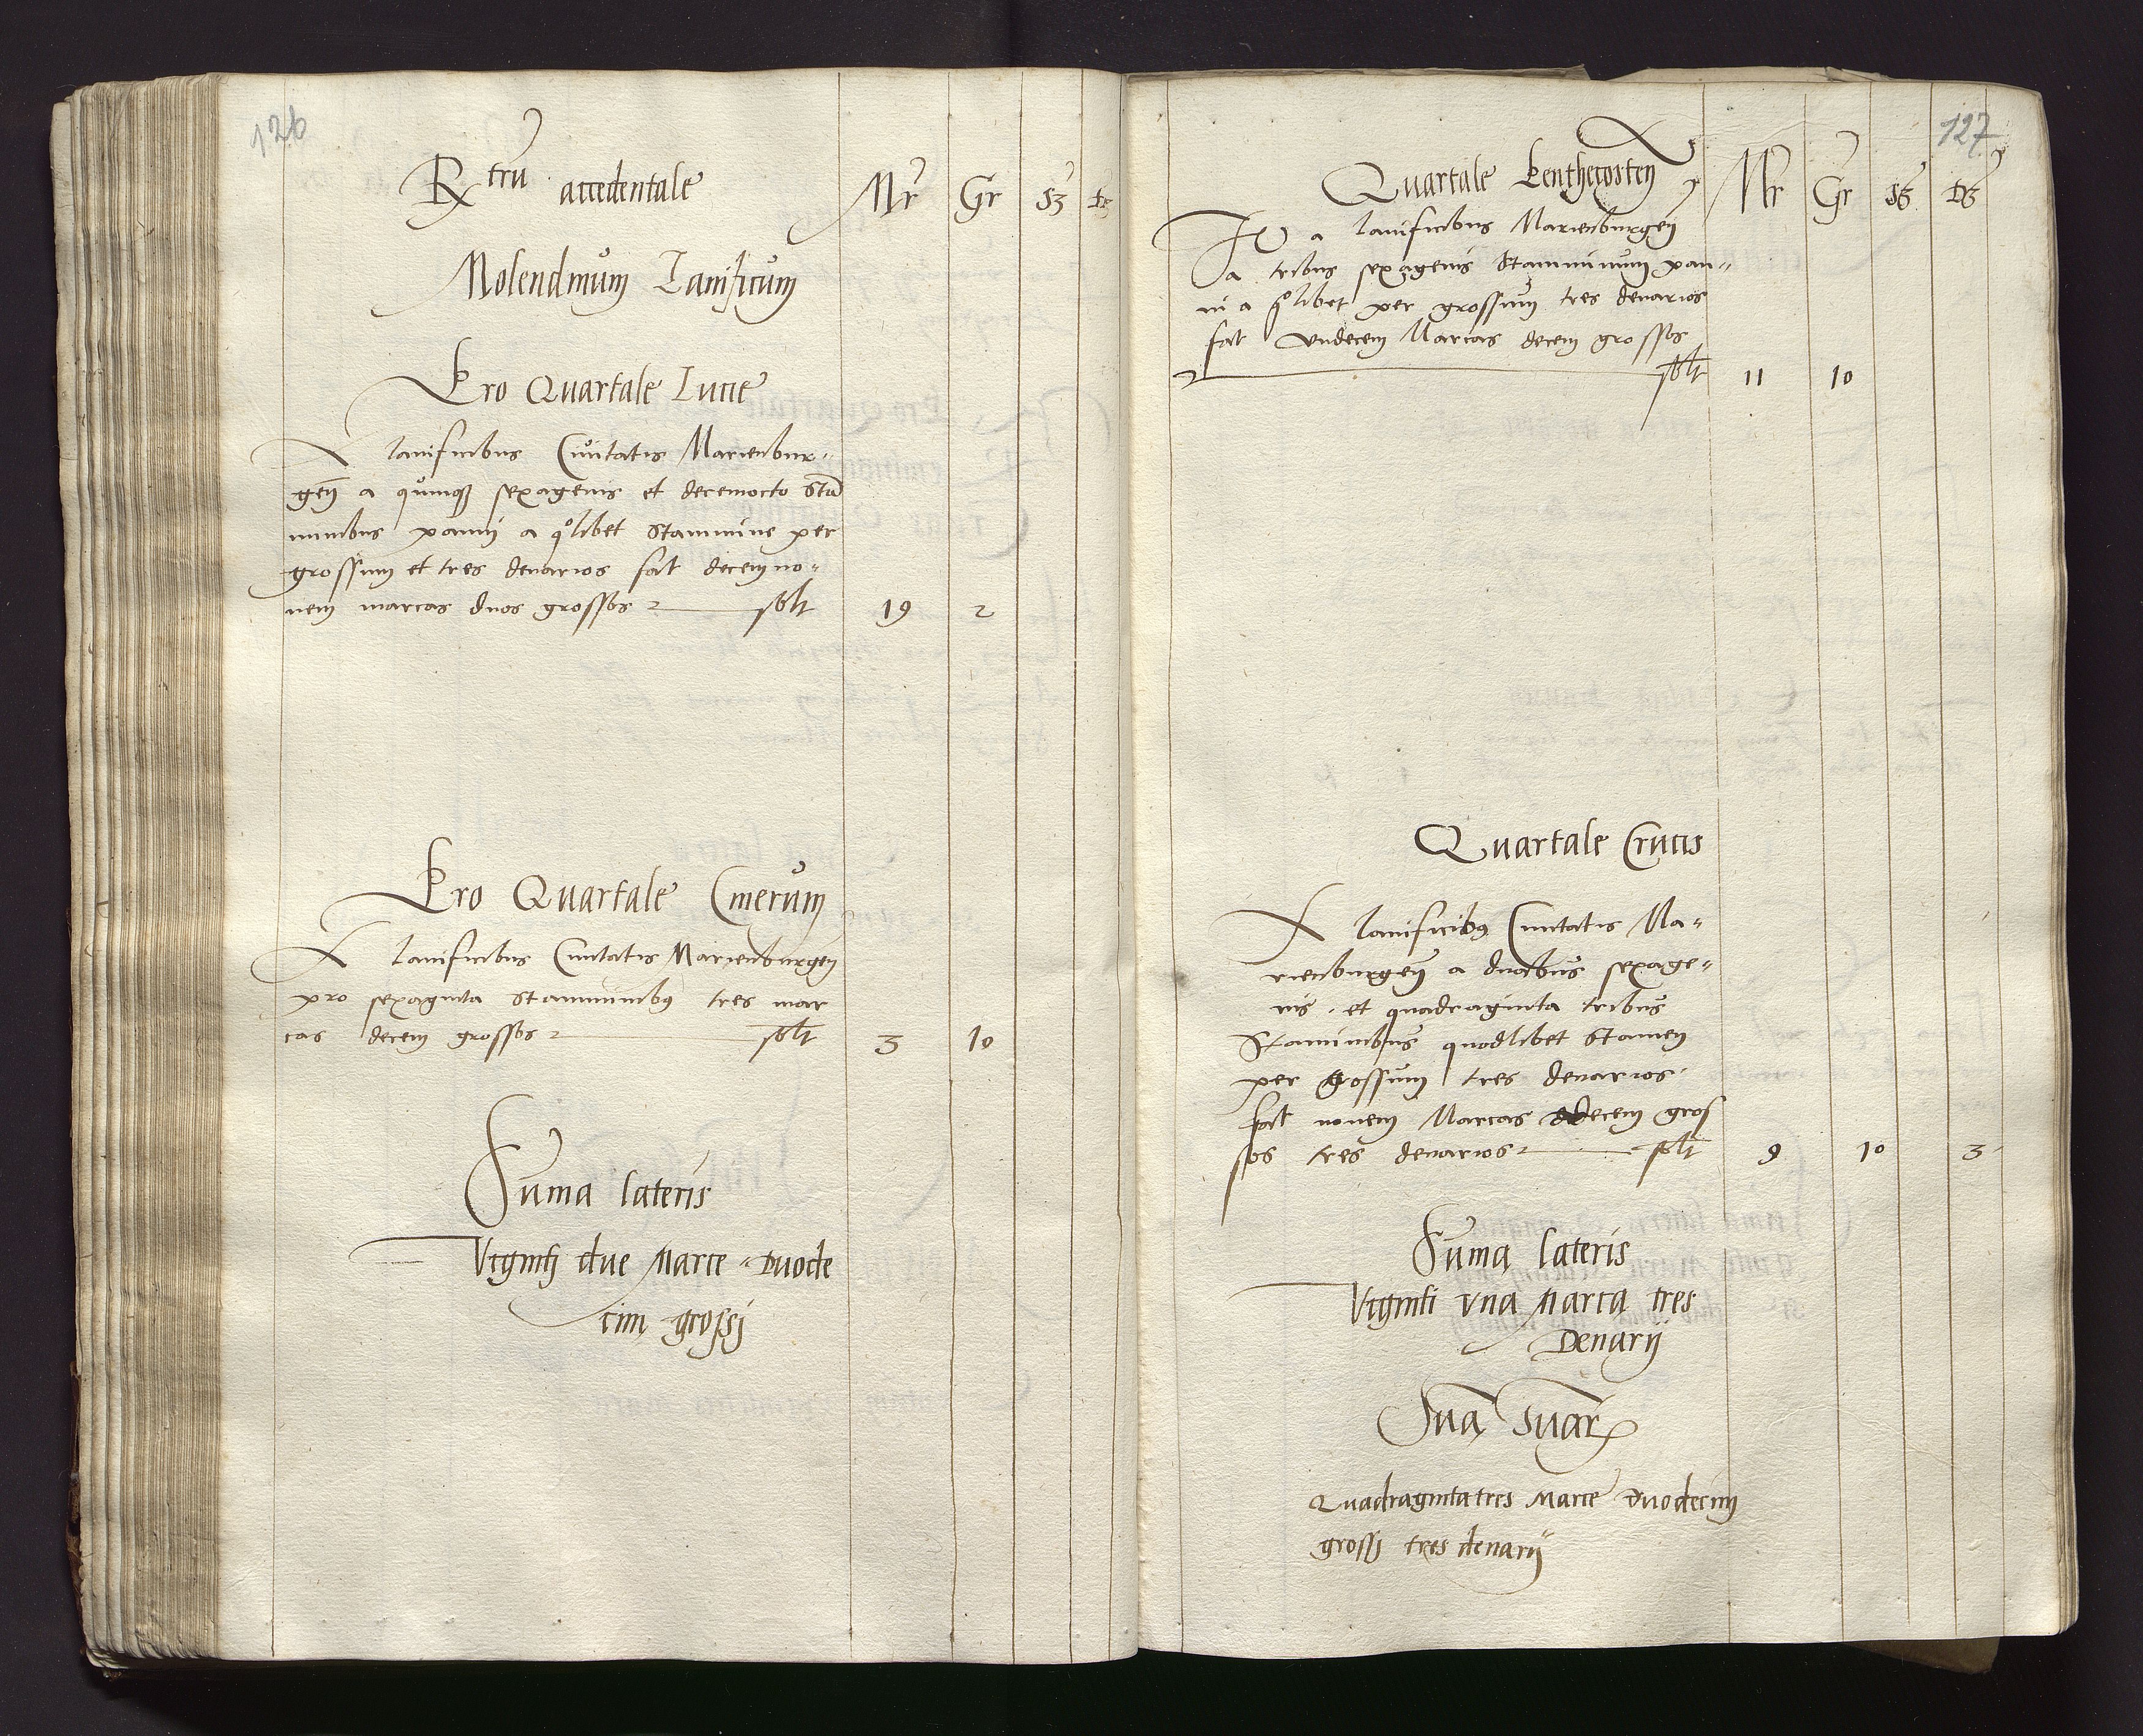 126
Rx trū accedentale Mr Gr Sz dz
Molendinum Lanificum
Pro Quartale Lucie
A lanificibus Ciuitatis Marienbur=
gen̄ a quinq3 sexagenis et decemocto Sta
minibus panni a q°libet Stammine per
grossum et tres denarios fat decemno=
uem marcas duos grossos solt 19 2
Pro Quartale Cinerum
A lanificibus Ciuitatis Marienburgen̄
pro sexaginta Stamminibus tres mar
cas decem grossos solt 3 10
Suma lateris
Viginti due Marce Duode
cim grossj
127
Quartale Penthecosten Mr Gr Sz dz
It a lanificibus Marienburgen̄
a tribus sexagenis Stamminum pan=
ni a q°libet per grossum tres denarios
fat vndecem Marcas decem grossos
solt 11 10
Quartale Crucis
A lanificibus Ciuitatis Ma=
rienburgen̄ a duabus sexage=
nis et quadraginta tribus
Staminibus quodlibet Stamen
per grossum tres denarios
fat nouem Marcas decem gros
sos tres denarios solt 9 10 3
Suma lateris
Viginti vna Marca tres
Denarij
Sua Suar
Quadragintatres Marce Duodecim
grossj tres denarij